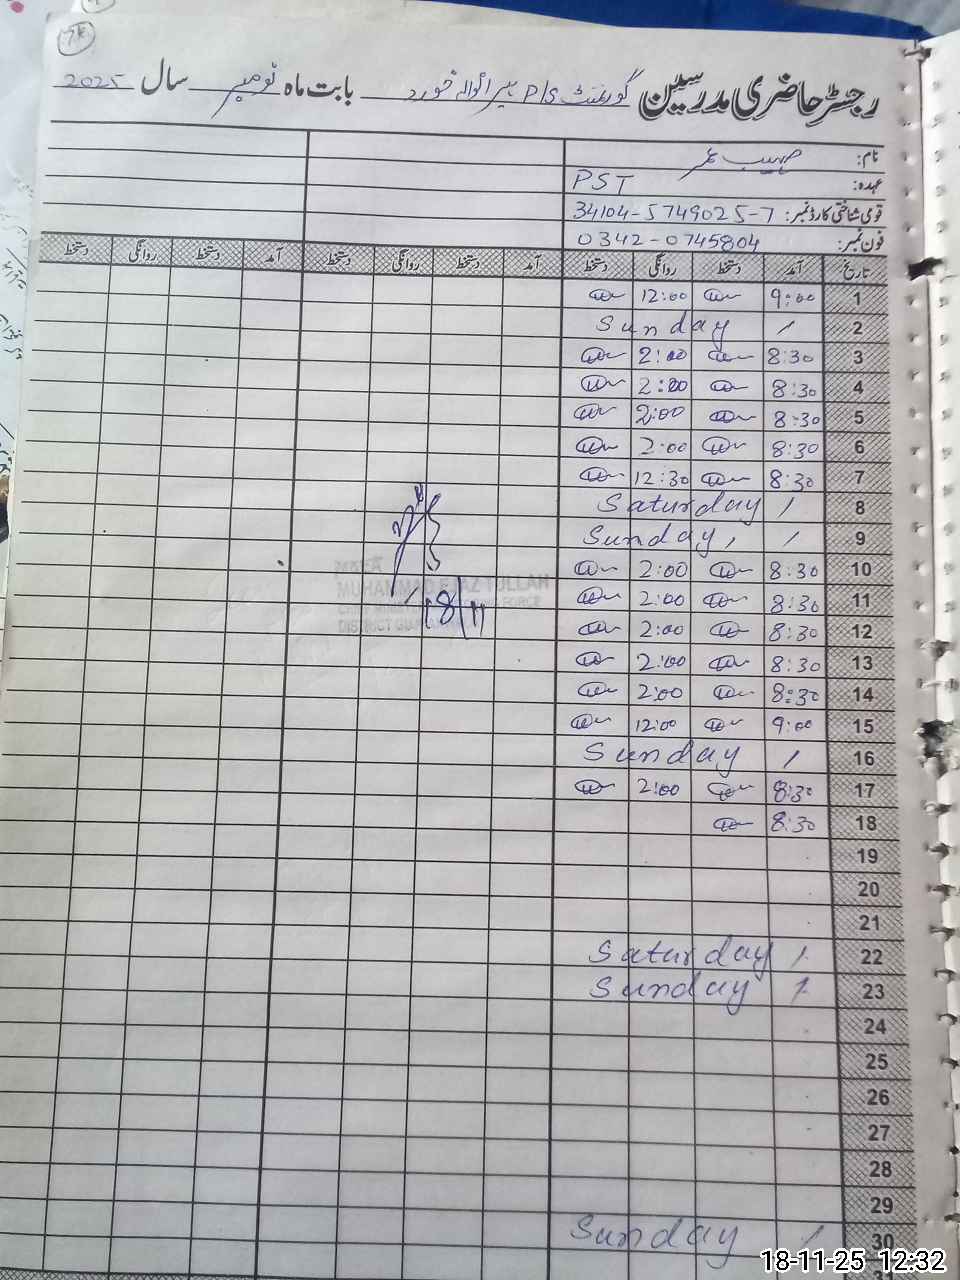 رجسٹر حاضری مدرسین گورنمنٹ P/S خورد بابت ماہ نومبر سال 2025
نام:
عہدہ: PST
قومی شناختی کارڈ نمبر: 34104-5749025-7
فون نمبر: 0342-0745804
تاریخ آمد دستخط روانگی دستخط آمد دستخط روانگی دستخط آمد دستخط روانگی دستخط
1 9:00 12:00
2 Sunday
3 8:30 2:00
4 8:30 2:00
5 8:30 2:00
6 8:30 2:00
7 8:30 12:30
8 Saturday
9 Sunday
10 8:30 2:00
11 8:30 2:00
12 8:30 2:00
13 8:30 2:00
14 8:30 2:00
15 9:00 12:00
16 Sunday
17 8:30 2:00
18 8:30
19
20
21
22 Saturday
23 Sunday
24
25
26
27
28
29
30 Sunday
MUHAMMAD
FORCE
DISTRICT
18/11
18-11-25 12:32